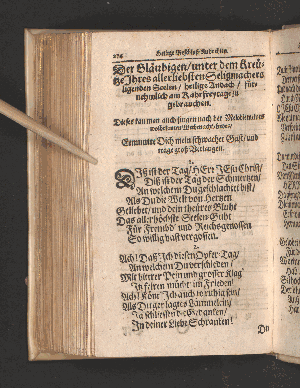 274 Heilige Beschluß-Andachten.
Der Gläubigen / unter dem Creu-
tze Ihres allerliebsten Seligmachers
ligenden Seelen / heilige Andach / für-
nehmlich am Kahrfreytage zu
gebrauchen.
Dieses kan man auch singen nach der
Ermuntre Dich mein schwacher Geist / und
trage groß Verlangen.
1.
Diß ist der Tag / HErr JEsu Christ /
Diß ist der Tag der Schmertzen /
An welchem Du geschlachtet bist /
Als Du die Welt von Hertzen
Geliebet / und dein theures Bluht
Das allerhöhste Seelen-Guht
Für Freund' und Reichsgenossen
So willig hast vergossen.
2.
Ach! Daß ich diesen Opfer-Tag /
An welchem Du verschieden /
Mit bittrer Pein und grosser Klag'
In feiren möcht' im Frieden!
Ach! Könt' Ich auch so ruhig sein /
Als Du mein Lämmelein /
In deiner Liebe Schranken!
Du